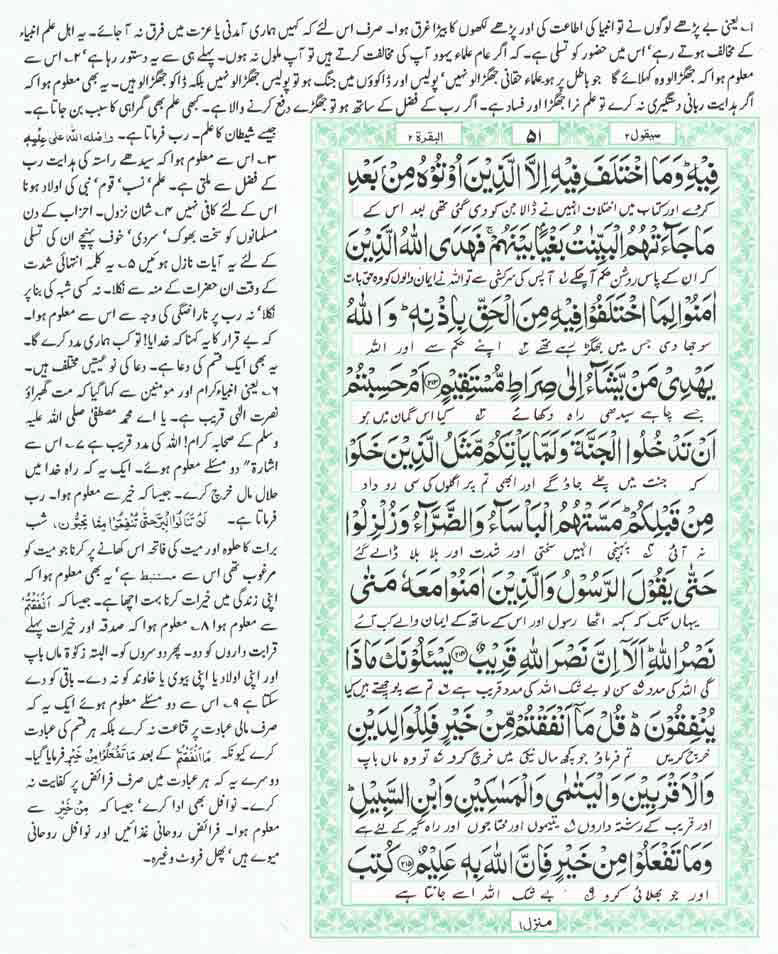 ۱۔ یعنی بے پڑھے لوگوں نے تو انبیا کی اطاعت کی اور پڑھے لکھوں کا بیڑا غرق ہوا۔ صرف اس لئے کہ کہیں ہماری آمدنی یا عزت میں فرق نہ آ جائے۔ یہ اہل علم انبیاء
کے مخالف ہوتے رہے' اس میں حضور کو تسلی ہے۔ کہ اگر عام علماء یہود آپ کی مخالفت کرتے ہیں تو آپ ملول نہ ہوں۔ پہلے ہی سے یہ دستور رہا ہے' ۲۔ اس سے
معلوم ہوا کہ جھگڑالو وہ کہلائے گا جو باطل پر ہو علماء حقانی جھگڑالو نہیں' پولیس اور ڈاکوؤں میں جنگ ہو تو پولیس جھگڑالو نہیں بلکہ ڈاکو جھگڑالو ہیں۔ یہ بھی معلوم ہوا کہ
اگر ہدایت ربانی دستگیری نہ کرے تو علم نرا جھگڑا اور فساد ہے۔ اگر رب کے فضل کے ساتھ ہو تو جھگڑے دفع کرنے والا ہے۔ کبھی علم بھی گمراہی کا سبب بن جاتا ہے۔
جیسے شیطان کا علم۔ رب فرماتا ہے۔ واضله الله على علم
۳۔ اس سے معلوم ہوا کہ سیدھے راستہ کی ہدایت رب
کے فضل سے ملتی ہے۔ علم' نسب' قوم' نبی کی اولاد ہونا
اس کے لئے کافی نہیں ۴۔ شان نزول۔ احزاب کے دن
مسلمانوں کو سخت بھوک' سردی' خوف پہنچے ان کی تسلی
کے لئے یہ آیات نازل ہوئیں ۵۔ یہ کلمہ انتہائی شدت
کے وقت ان حضرات کے منہ سے نکلا۔ نہ کسی شبہ کی بنا پر
نکلا' نہ رب پر ناراضگی کی وجہ سے اس سے معلوم ہوا۔
کہ بے قرار کا یہ کہنا کہ خدایا! تو کب ہماری مدد کرے گا۔
یہ بھی ایک قسم کی دعا ہے۔ دعا کی نوعیتیں مختلف ہیں۔
۶۔ یعنی انبیاء کرام اور مومنین سے کہا گیا کہ مت گھبراؤ
نصرت الٰہی قریب ہے۔ یا اے محمد مصطفیٰ صلی اللہ علیہ
وسلم کے صحابہ کرام! اللہ کی مدد قریب ہے ۷۔ اس سے
اشارۃ" دو مسئلے معلوم ہوئے۔ ایک یہ کہ راہ خدا میں
حلال مال خرچ کرے۔ جیسا کہ خیر سے معلوم ہوا۔ رب
فرماتا ہے۔ لَنْ تَنَالُوا الْبِرَّ حَتّٰى تُنْفِقُوا مِمَّا تُحِبُّونَ، شب
برات کا حلوہ اور میت کی فاتحہ اس کھانے پر کرنا جو میت کو
مرغوب تھی اس سے مستنبط ہے' یہ بھی معلوم ہوا کہ
اپنی زندگی میں خیرات کرنا بہت اچھا ہے۔ جیسا کہ اَنْفَقْتُمْ
سے معلوم ہوا ۸۔ معلوم ہوا کہ صدقہ اور خیرات پہلے
قرابت داروں کو دو۔ پھر دوسروں کو۔ البتہ زکوٰۃ ماں باپ
اور اپنی اولاد یا اپنی بیوی یا خاوند کو نہ دے۔ باقی کو دے
سکتا ہے ۹۔ اس سے دو مسئلے معلوم ہوئے ایک یہ کہ
صرف مالی عبادت پر قناعت نہ کرے بلکہ ہر قسم کی عبادت
کرے کیونکہ مَا اَنْفَقْتُمْ کے بعد مَا تَفْعَلُوْا مِنْ خَيْرٍ فرمایا گیا۔
دوسرے یہ کہ ہر عبادت میں صرف فرائض پر کفایت نہ
کرے۔ نوافل بھی ادا کرے' جیسا کہ مِنْ خَيْرٍ سے
معلوم ہوا۔ فرائض روحانی غذائیں اور نوافل روحانی
میوے ہیں' پھل فروٹ وغیرہ۔
سیقول ۲
۵۱
البقرۃ ۲
فِيْهِ ؕ وَمَا اخْتَلَفَ فِيْهِ اِلَّا الَّذِيْنَ اُوْتُوْهُ مِنْۢ بَعْدِ
کر دے اور کتاب میں اختلاف انہیں نے ڈالا جن کو دی گئی تھی بعد اس کے
مَا جَآءَتْهُمُ الْبَيِّنٰتُ بَغْيًاۢ بَيْنَهُمْ ۚ فَهَدَى اللّٰهُ الَّذِيْنَ
کہ ان کے پاس روشن حکم آ چکے ۱ آپس کی سرکشی سے تو اللہ نے ایمان والوں کو وہ حق بات
اٰمَنُوْا لِمَا اخْتَلَفُوْا فِيْهِ مِنَ الْحَقِّ بِاِذْنِهٖ ؕ وَاللّٰهُ
سوجھا دی جس میں جھگڑ رہے تھے ۲ اپنے حکم سے اور اللہ
يَهْدِيْ مَنْ يَّشَآءُ اِلٰى صِرَاطٍ مُّسْتَقِيْمٍ ﴿۲۱۳﴾ اَمْ حَسِبْتُمْ
جسے چاہے سیدھی راہ دکھائے ۳ کیا اس گمان میں ہو
اَنْ تَدْخُلُوا الْجَنَّةَ وَلَمَّا يَاْتِكُمْ مَّثَلُ الَّذِيْنَ خَلَوْا
کہ جنت میں چلے جاؤ گے اور ابھی تم پر اگلوں کی سی روداد
مِنْ قَبْلِكُمْ ؕ مَسَّتْهُمُ الْبَاْسَآءُ وَالضَّرَّآءُ وَزُلْزِلُوْا
نہ آئی ۴ پہنچی انہیں سختی اور شدت اور ہلا ہلا ڈالے گئے
حَتّٰى يَقُوْلَ الرَّسُوْلُ وَالَّذِيْنَ اٰمَنُوْا مَعَهٗ مَتٰى
یہاں تک کہ کہہ اٹھا رسول اور اس کے ساتھ کے ایمان والے کب آئے
نَصْرُ اللّٰهِ ؕ اَلَاۤ اِنَّ نَصْرَ اللّٰهِ قَرِيْبٌ ﴿۲۱۴﴾ يَسْئَلُوْنَكَ مَاذَا
گی اللہ کی مدد ۵ سن لو بے شک اللہ کی مدد قریب ہے ۶ تم سے پوچھتے ہیں کیا
يُنْفِقُوْنَ ؕ قُلْ مَاۤ اَنْفَقْتُمْ مِّنْ خَيْرٍ فَلِلْوَالِدَيْنِ
خرچ کریں تم فرماؤ جو کچھ مال نیکی میں خرچ کرو ۷ تو وہ ماں باپ
وَالْاَقْرَبِيْنَ وَالْيَتٰمٰى وَالْمَسٰكِيْنِ وَابْنِ السَّبِيْلِ ؕ
اور قریب کے رشتہ داروں ۸ یتیموں اور محتاجوں اور راہ گیر کے لئے ہے
وَمَا تَفْعَلُوْا مِنْ خَيْرٍ فَاِنَّ اللّٰهَ بِهٖ عَلِيْمٌ ﴿۲۱۵﴾ كُتِبَ
اور جو بھلائی کرو ۹ بے شک اللہ اسے جانتا ہے
منزل ۱